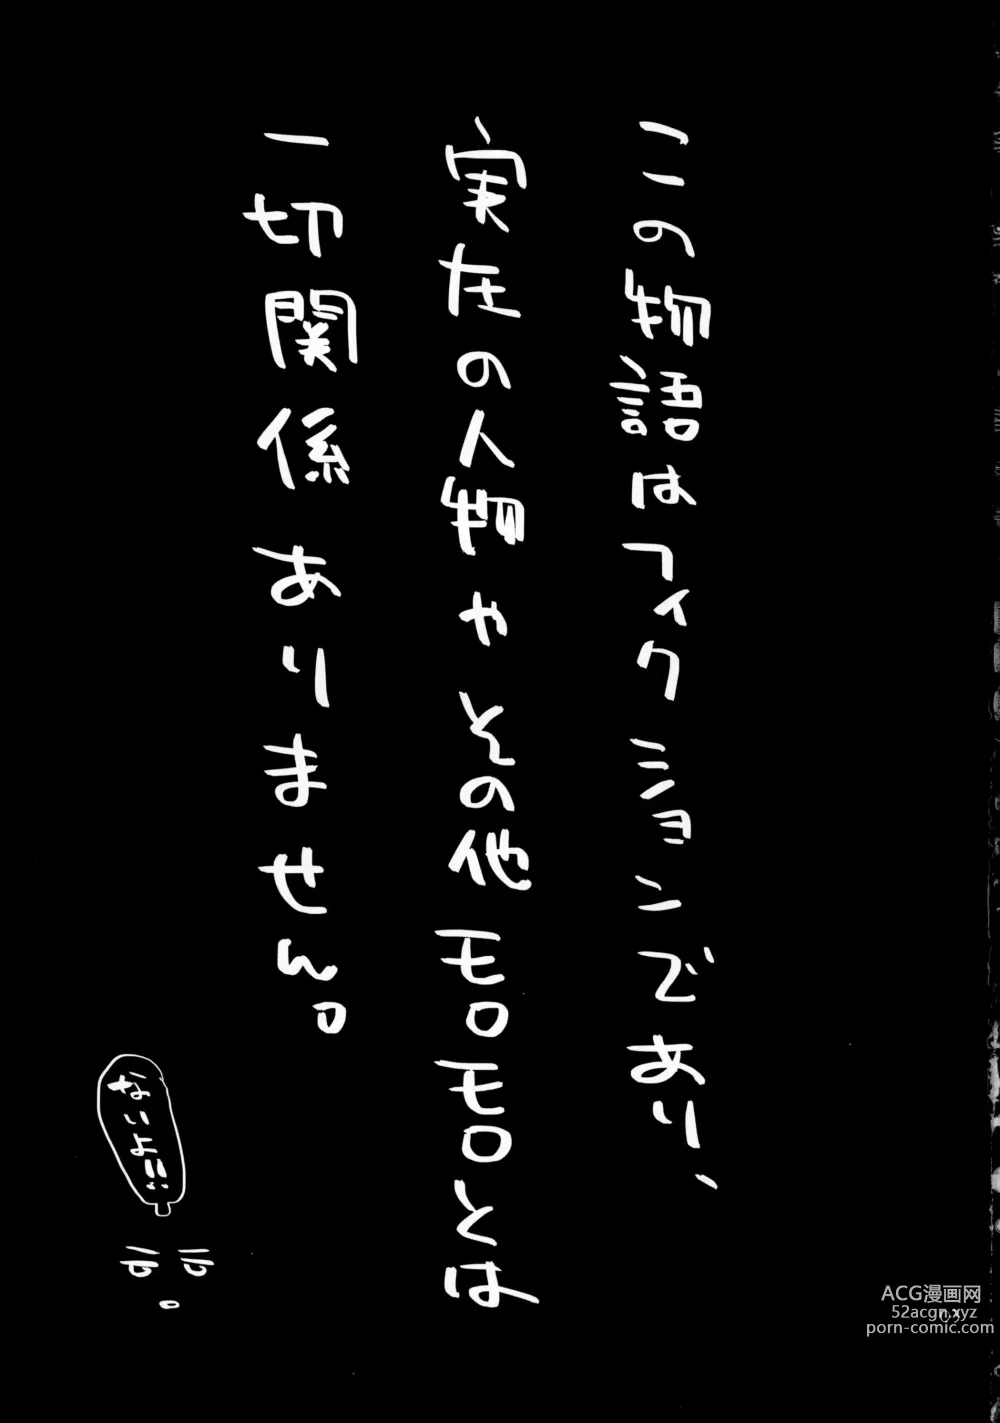 この物語はフィクションであり、
実在の人物やその他モロモロとは
一切関係ありません。
ないよ!!
ACG漫画网
52acgn.xyz
porn-comic.com